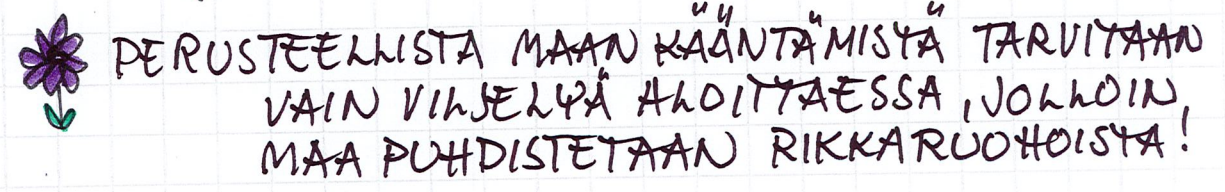 PERUSTEELLISTA MAAN KÄÄNTÄMISTÄ TARVITAAN
VAIN VILJELYÄ ALOITTAESSA, JOLLOIN
MAA PUHDISTETAAN RIKKARUOHOISTA!